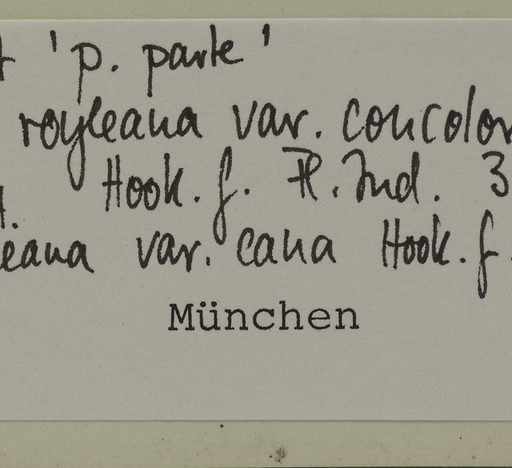 'p. parte'
royleana var. concolor
Hook. f. Fl. Ind. 3
eana var. cana Hook. f.
München